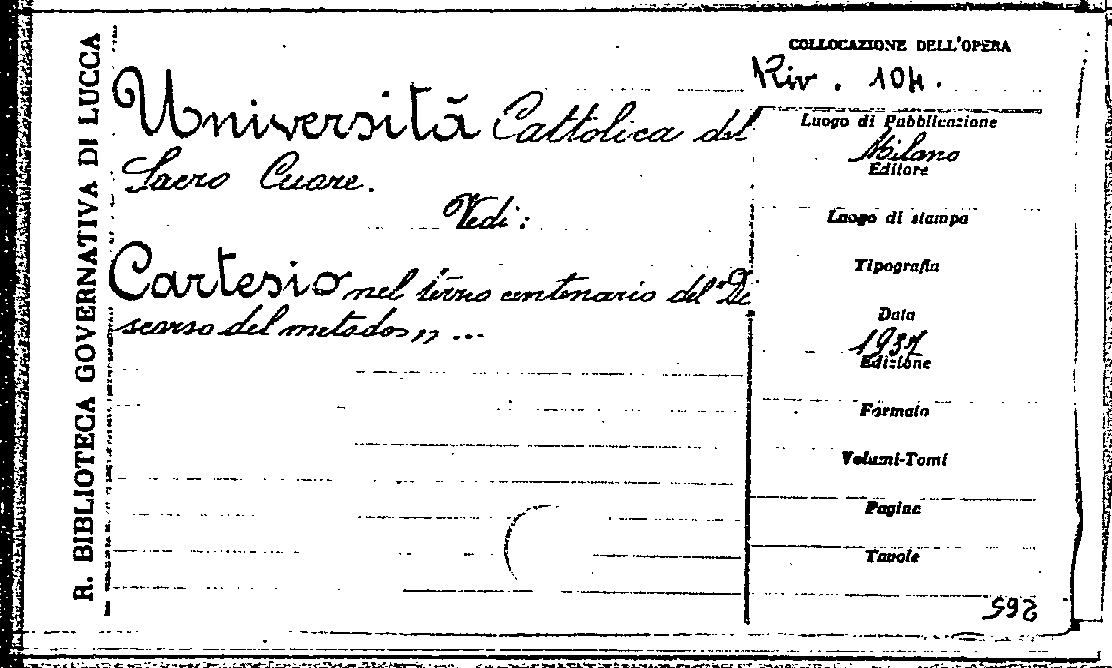 R. BIBLIOTECA GOVERNATIVA DI LUCCA
Università Cattolica del
Sacro Cuore.
Vedi:
Cartesio nel terzo centenario del "Di
scorso del metodo" ...
COLLOCAZIONE DELL'OPERA
Riv. 104.
Luogo di Pubblicazione
Milano
Editore
Luogo di stampa
Tipografia
Data
1937
Edizione
Formato
Volumi-Tomi
Pagine
Tavole
592